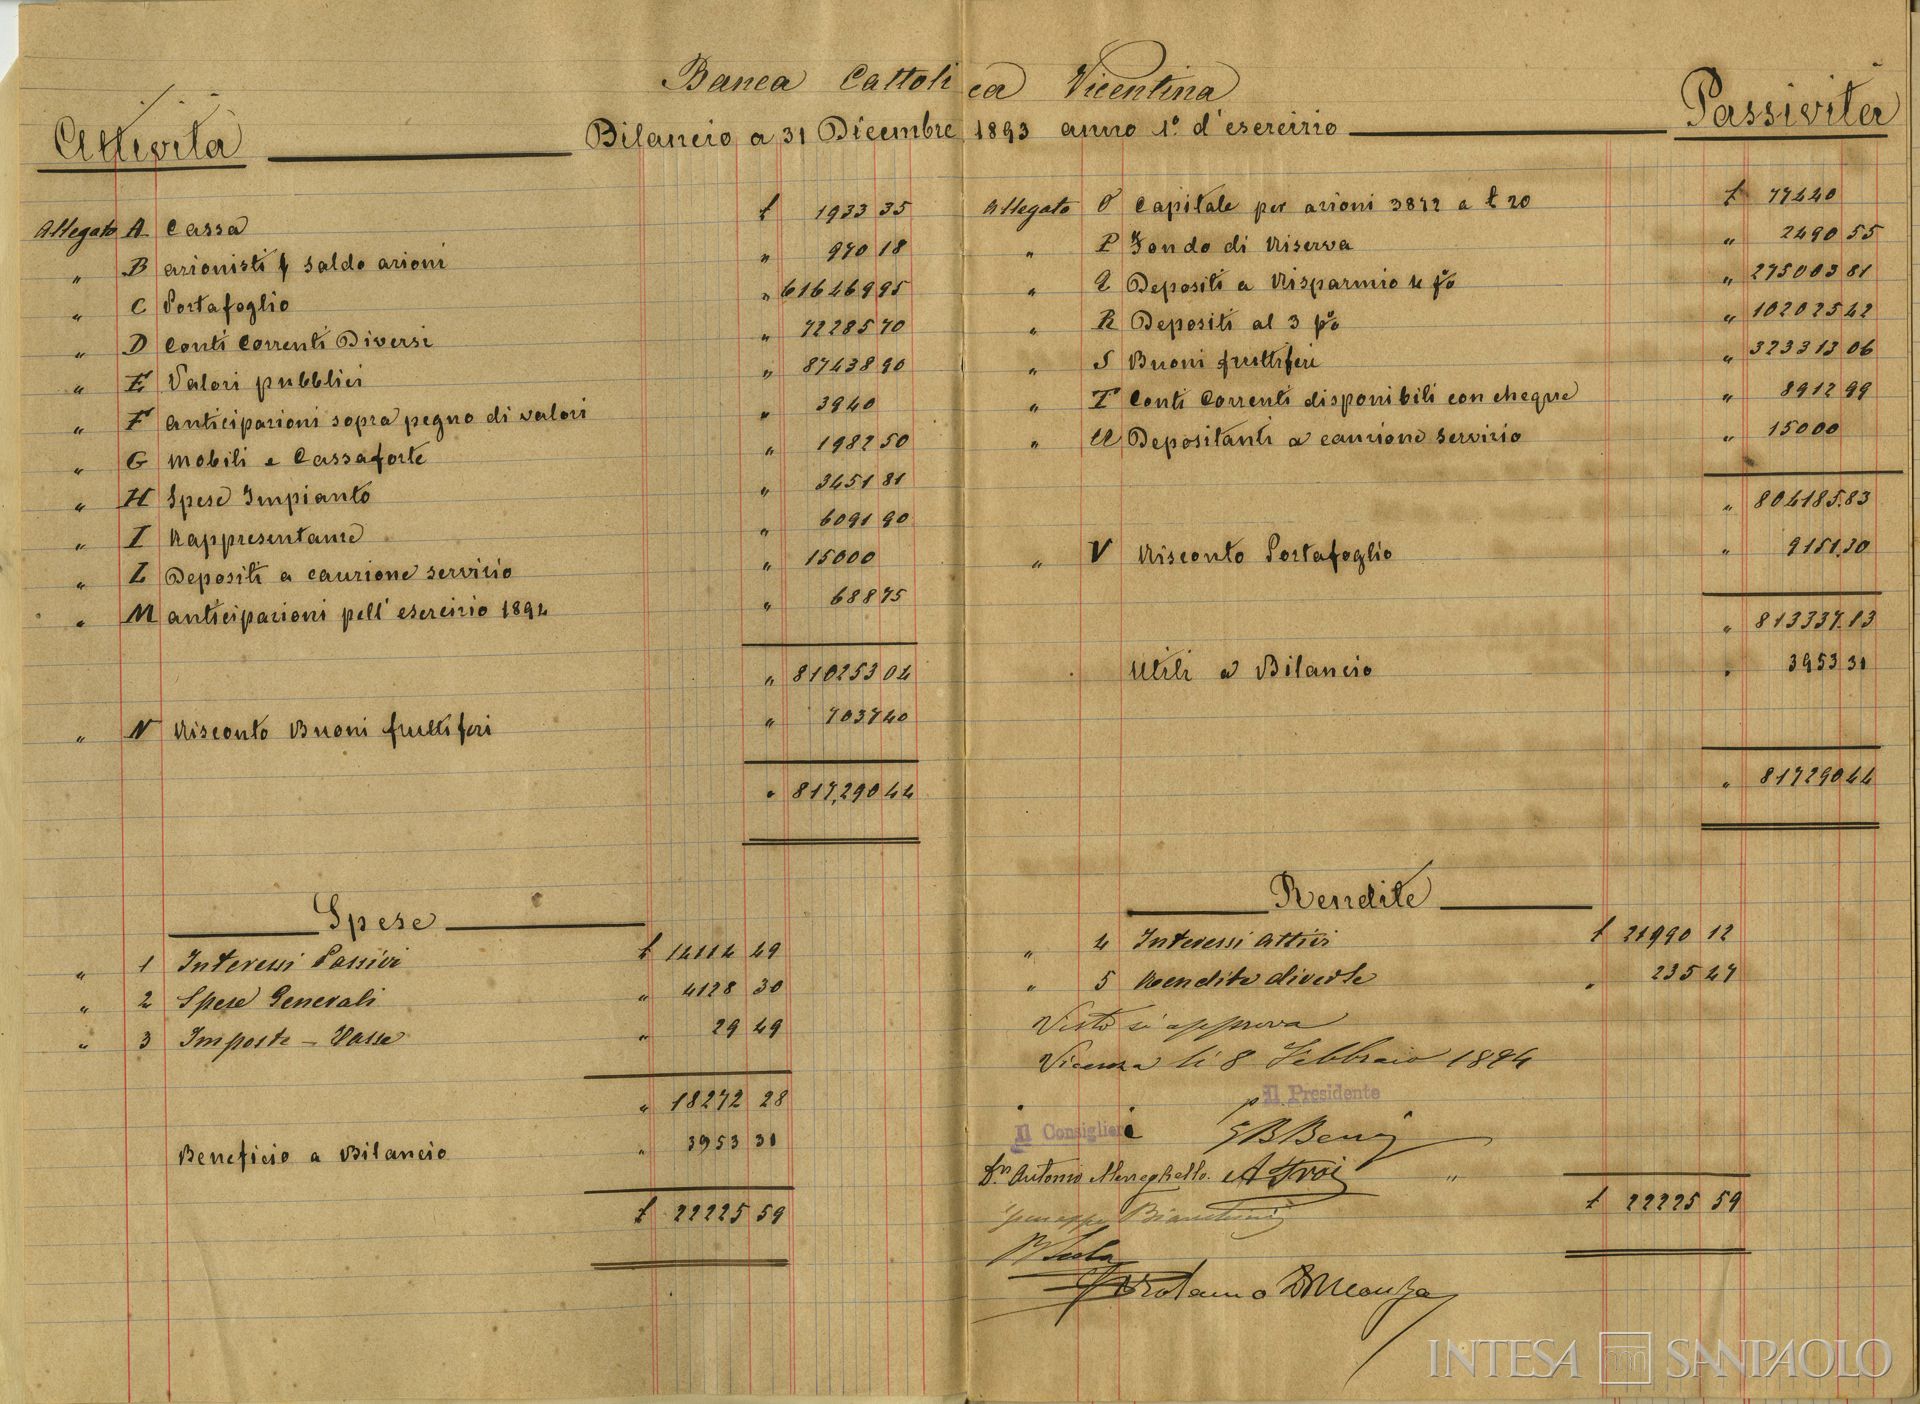 Banca Cattolica Vicentina
Attività Bilancio a 31 Dicembre 1893 anno 1º d'esercizio Passività
Allegato A Cassa £ 1933 35
„ B azionisti p saldo azioni „ 970 18
„ C Portafoglio „ 616469 95
„ D Conti Correnti Diversi „ 72285 70
„ E Valori pubblici „ 87438 90
„ F anticipazioni sopra pegno di valori „ 3940
„ G Mobili e Cassaforte „ 1982 50
„ H Spese Impianto „ 3451 81
„ I Rappresentanze „ 6091 90
„ L Depositi a cauzione servizio „ 15000
„ M anticipazioni pell'esercizio 1894 „ 688 75
„ 810253 04
„ N Risconto Buoni fruttiferi „ 7037 40
„ 817,290 44
Spese
„ 1 Interessi Passivi £ 14114 49
„ 2 Spese Generali „ 4128 30
„ 3 Imposte - Tasse „ 29 49
„ 18272 28
Beneficio a Bilancio „ 3953 31
£ 22225 59
Allegato O Capitale per azioni 3872 a £ 20 £ 77440
„ P Fondo di Riserva „ 2490 55
„ Q Depositi a Risparmio 4 p% „ 275003 81
„ R Depositi al 3 p% „ 102025 42
„ S Buoni fruttiferi „ 323313 06
„ T Conti Correnti disponibili con cheque „ 8912 99
„ U Depositanti a cauzione servizio „ 15000
„ 804185.83
„ V Risconto Portafoglio „ 9151.30
„ 813337.13
Utili a Bilancio „ 3953 31
„ 817290 44
Rendite
„ 4 Interessi attivi £ 21990 12
„ 5 Rendite diverse „ 235 47
Visto si approva
Vicenza li 8 Febbraio 1894
Il Presidente
Il Consiglieri
Dn Antonio Meneghello.
Giuseppe Bianchini
£ 22225 59
INTESA SANPAOLO